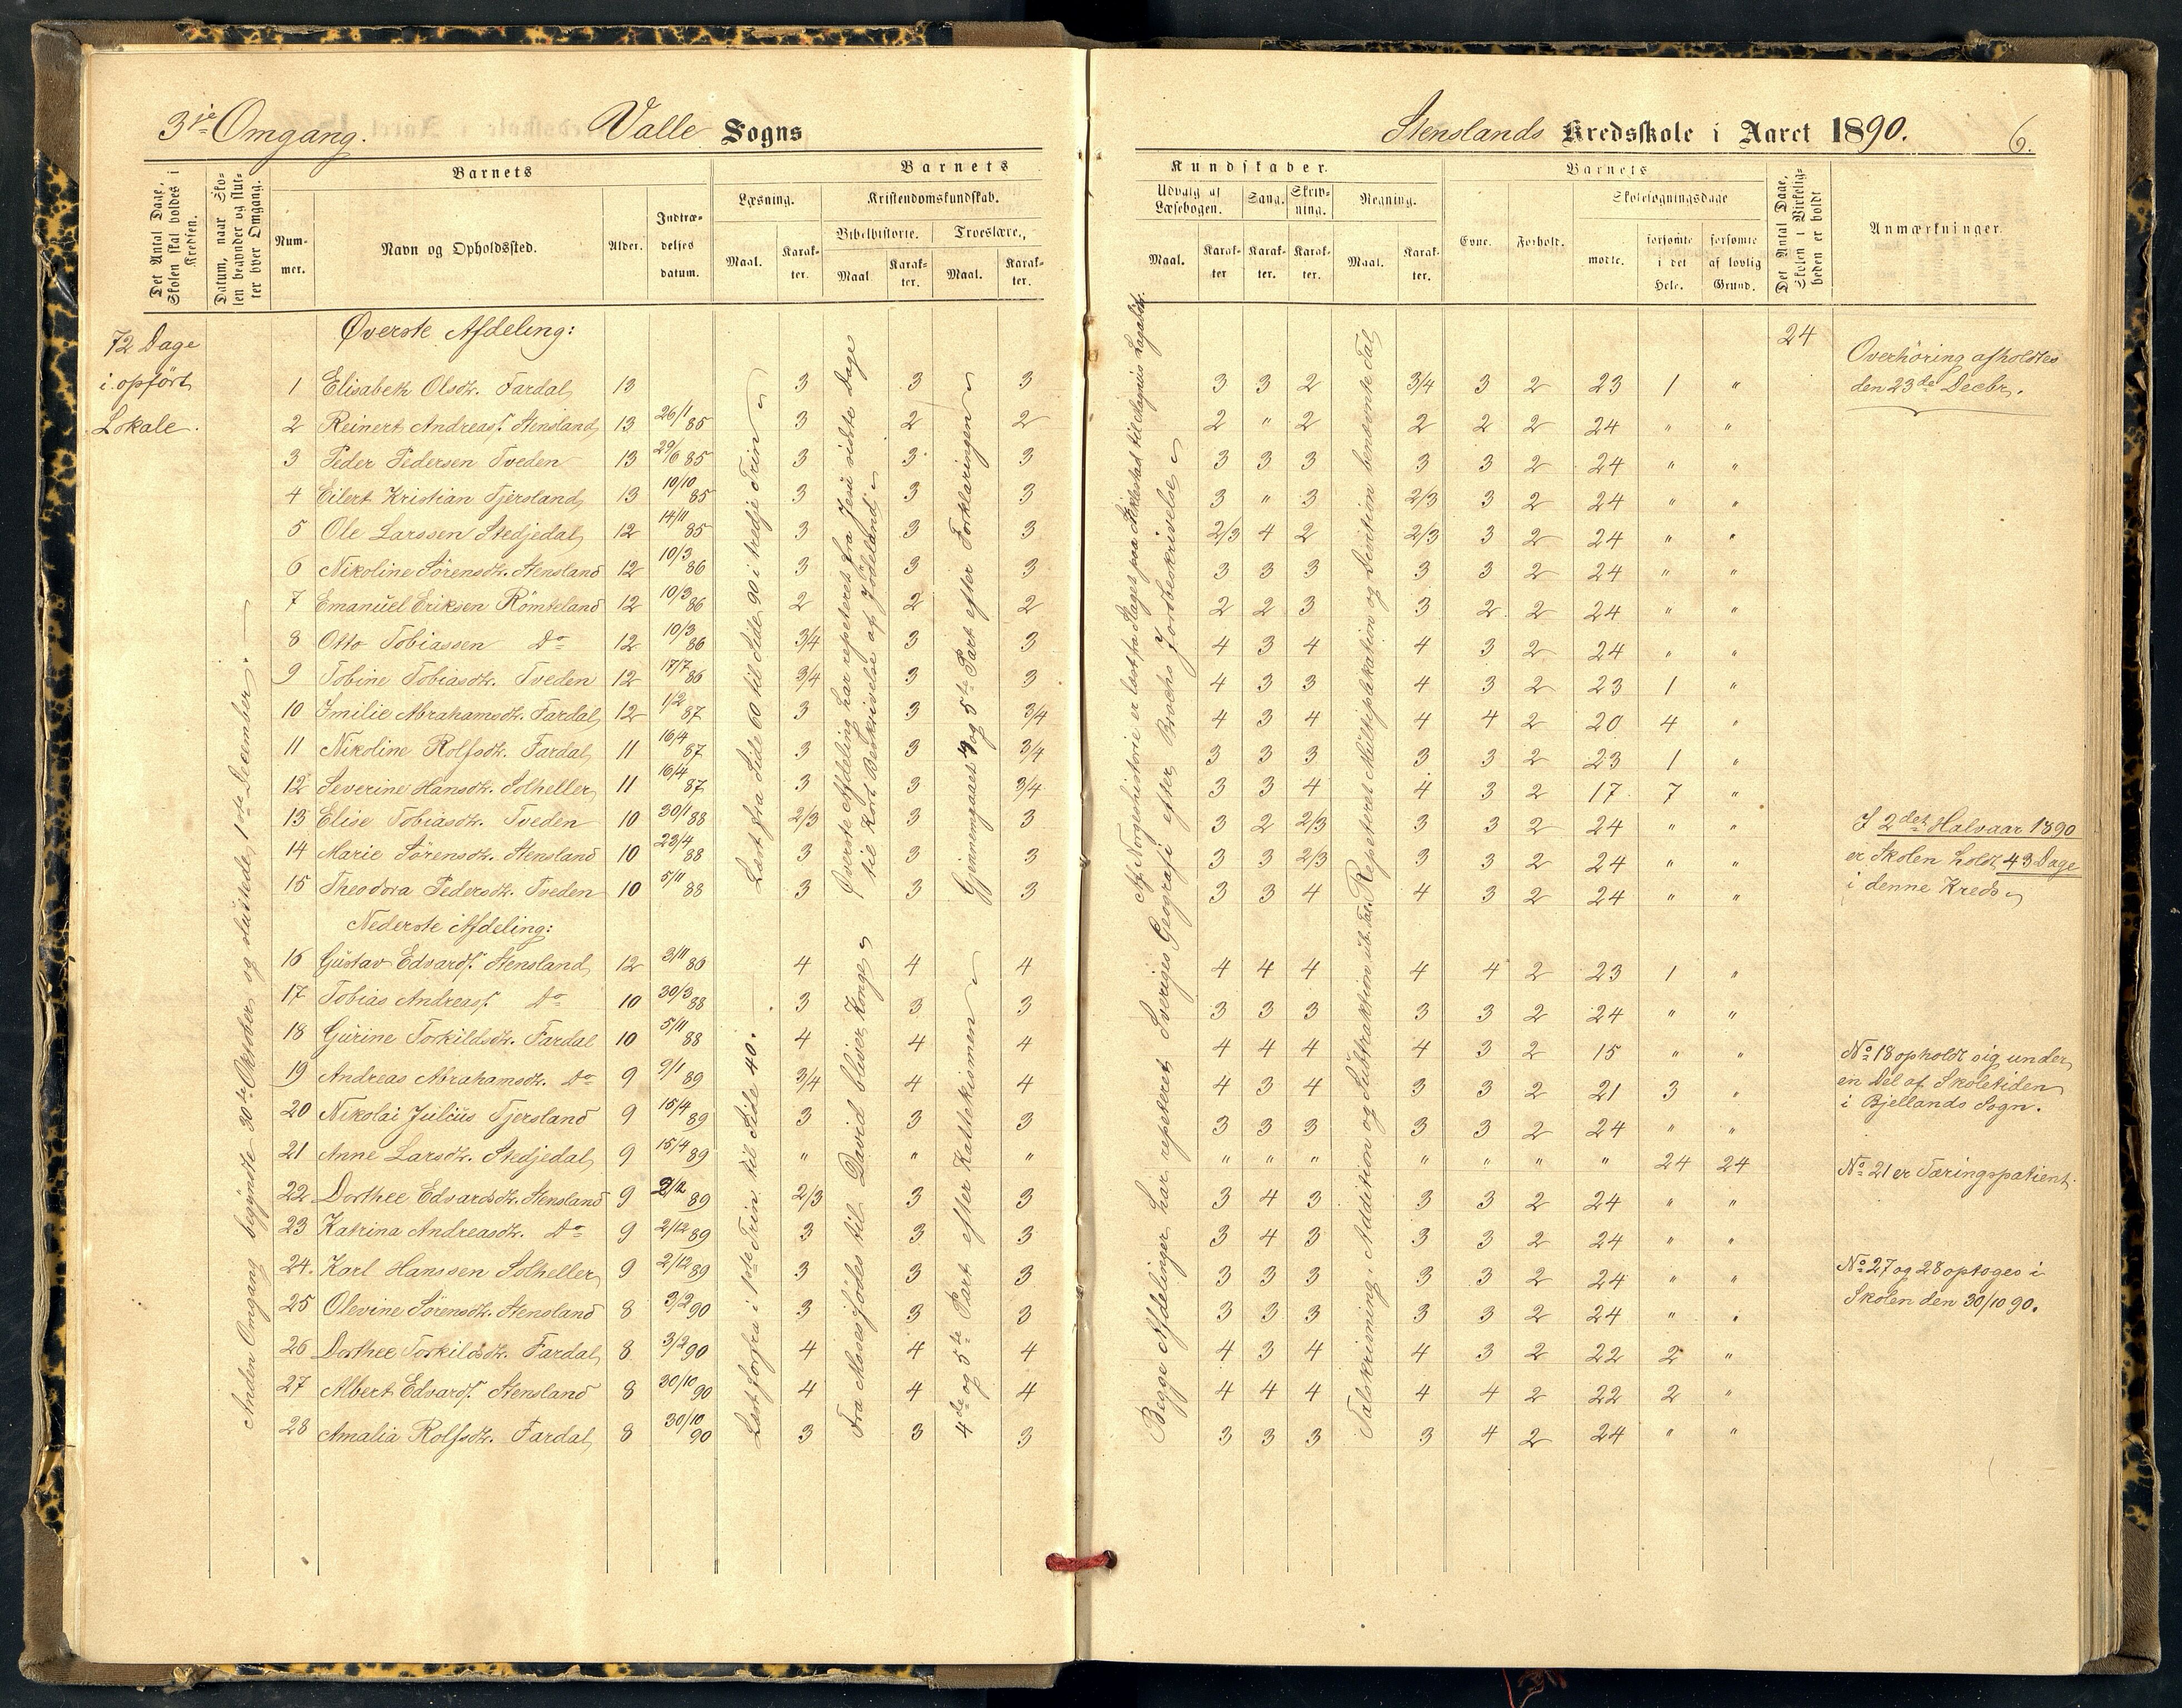 3je Omgang. Valle Sogns
Stenslands Kredsskole i Aaret 1890. 6.
Det Antal Dage, Skolen skal holdes i Kredsen.
Datum, naar Skolen begynder og slutter hver Omgang.
Barnets
Nummer.
Navn og Opholdssted.
Alder.
Indtrædelses datum.
Barnets
Læsning.
Maal.
Karakter.
Kristendomskundskab.
Bibelhistorie.
Maal
Karakter.
Troeslære.,
Maal.
Karakter.
Kundskaber.
Udvalg af Læsebogen.
Maal.
Karakter
Sang.
Karakter.
Skrivning.
Karakter.
Regning.
Maal.
Karakter.
Barnets
Evne.
Forhold.
Skolesøgningsdage
mødte.
forsømte i det Hele.
forsømte af lovlig Grund.
Det Antal Dage, Skolen i Virkeligheden er holdt
Anmærkninger.
72 Dage
i opført
Lokale.
Anden Omgang begyndte 30te Oktober og sluttede 1ste December.
Øverste Afdeling:
24
1 Elisabeth Olsdt. Fardal 13 3 3 3 3 3 2 3/4 3 2 23 1 "
2 Reinert Andreass. Stensland 13 26/1 85 3 2 2 2 " 2 2 2 2 24 " "
3 Peder Pedersen Tveden 13 29/6 85 3 3 3 3 3 3 3 3 2 24 " "
4 Eilert Kristian Tjersland 13 10/10 85 3 3 3 3 " 3 2/3 3 2 24 " "
5 Ole Larssen Stedjedal 12 14/11 85 3 3 3 2/3 4 2 2/3 3 2 24 " "
6 Nikoline Sørensdt. Stensland 12 10/3 86 3 3 3 3 3 3 3 3 2 24 " "
7 Emanuel Eriksen Römteland 12 10/3 86 2 2 2 2 2 3 3 2 2 24 " "
8 Otto Tobiassen Do 12 10/3 86 3/4 3 3 4 3 4 4 3 2 24 " "
9 Tobine Tobiasdt. Tveden 12 17/7 86 3/4 3 3 4 3 3 4 3 2 23 1 "
10 Emilie Abrahamsdt. Fardal 12 1/2 87 3 3 3/4 4 3 4 4 4 2 20 4 "
11 Nikoline Rolfsdt. Fardal 11 16/4 87 3 3 3/4 3 3 3 3 3 2 23 1 "
12 Severine Hansdt. Solheller 11 16/4 87 3 3 3/4 3 3 4 4 3 2 17 7 "
13 Elise Tobiasdt. Tveden 10 30/1 88 2/3 3 3 3 2 2/3 3 3 2 24 " "
14 Marie Sørensdt. Stensland 10 23/4 88 3 3 3 3 3 2/3 3 3 2 24 " "
15 Theodora Pedersdt. Tveden 10 5/11 88 3 3 3 3 3 4 4 3 2 24 " "
Nederste Afdeling:
16 Gustav Edvards. Stensland 12 3/11 86 4 4 4 4 4 4 4 4 2 23 1 "
17 Tobias Andreass. Do 10 30/3 88 3 3 3 3 3 3 3 3 2 24 " "
18 Gurine Torkildsdt. Fardal 10 5/11 88 4 4 4 4 4 4 4 3 2 15 " "
19 Andreas Abrahamsdt. Do 9 9/1 89 3/4 4 4 4 3 4 3 3 2 21 3 "
20 Nikolai Julius Tjersland 9 15/4 89 3 3 3 3 3 3 3 3 2 24 " "
21 Anne Larsdt. Stedjedal 9 15/4 89 " " " " " " " " " " 24 24
22 Dorthee Edvardsdt. Stensland 9 2/12 89 2/3 3 3 3 4 3 3 3 2 24 " "
23 Katrina Andreasdt. Do 9 2/12 89 3 3 3 3 4 3 3 3 2 24 " "
24. Karl Hanssen Solheller 9 2/12 89 3 3 3 3 3 3 3 3 2 24 " "
25 Olevine Sørensdt. Stensland 8 3/2 90 3 3 3 3 3 3 3 3 2 24 " "
26 Dorthee Torkildsdt. Fardal 8 3/2 90 4 4 4 4 3 4 4 3 2 22 2 "
27 Albert Edvards. Stensland 8 30/10 90 4 4 4 4 4 4 4 4 2 22 2 "
28 Amalia Rolfsdt. Fardal 8 30/10 90 3 3 3 3 3 3 3 4 2 24 " "
Læst fra Side 60 til Side 90 i tredje Trin
Læst forfra i 1ste Trin til Side 40.
Øverste Afdeling har repeteret fra Jesu sidste Dage
til Kort Beskrivelse af Jödeland
Fra Moses födes til David bliver Konge
Gjennemgaaet 4 og 5te Part efter Forklaringen
4de og 5te Part efter Katekismen
Af Norgeshistorie er læst fra Slaget paa Stiklestad til Magnus Lagabøt.
Begge Afdelinger har repeteret Sveriges Geografi efter Brochs Jordbeskrivelse
Repeteret Multiplikation og Division benævnte Tal
Talskrivning, Addition og Subtraktion ub. Tal.
Overhöring afholdtes
den 23de Decbr.
I 2det Halvaar 1890
er Skolen holdt 43 Dage
i denne Kreds
No 18 opholdt sig under
en Del af Skoletiden
i Bjellands Sogn.
No 21 er Tæringspatient.
No 27 og 28 optoges i
Skolen den 30/10 90.